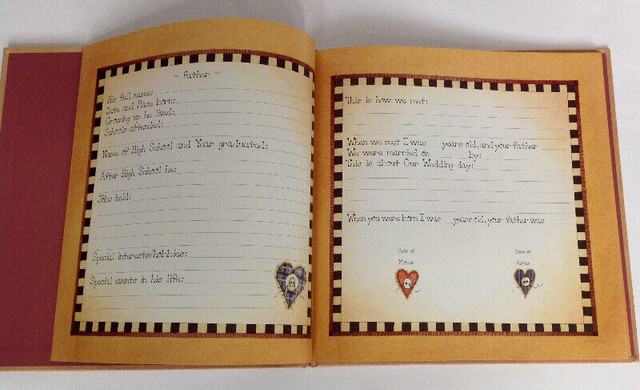 ~ Father ~
His full name:
Date and Place born:
Growing up he lived:
Schools attended:
Name of High School and Year graduated:
After High School he:
Jobs held:
Special interests/hobbies:
Special events in his life:
This is how we met:
When we met I was years old, and your father
We were married on by:
This is about Our Wedding day:
When you were born I was years old, your father was
Mother
Father